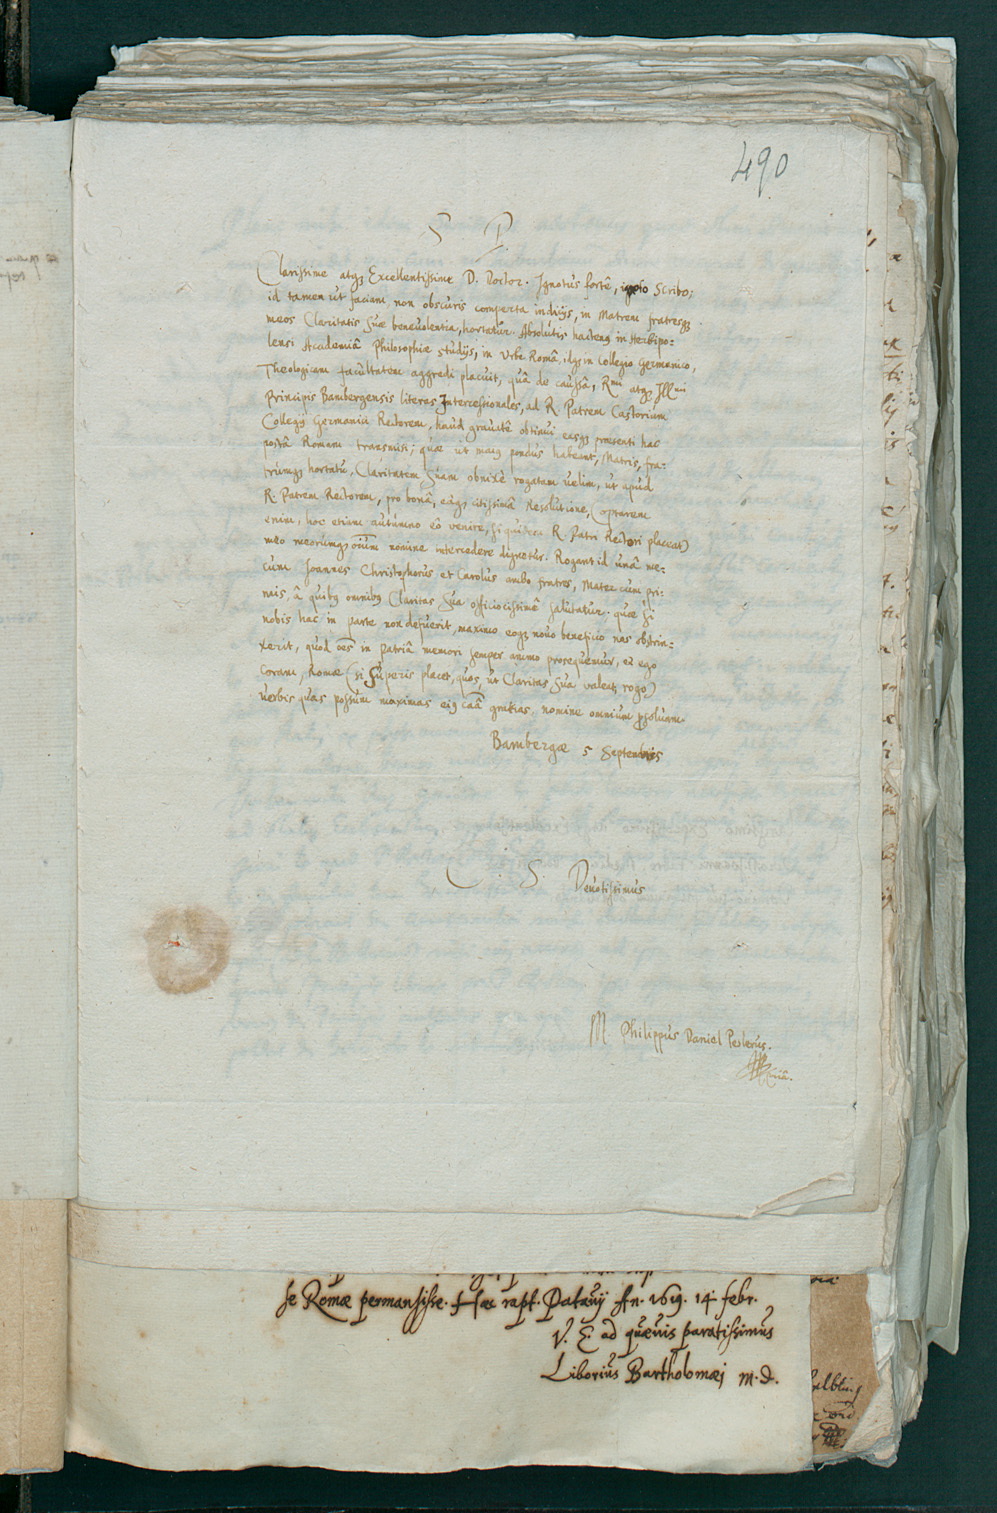 490
S. P.
Clarissime atq₃ Excellentissime D. Doctor. Ignotus fortè, ignoto scribo;
id tamen ut faciam non obscuris comperta indiciis, in Matrem fratresq₃
meos Claritatis Suæ beneuolentia, hortatur. Absolutis hacteng in Herbipo=
lensi Academiâ Philosophiæ studijs, in Vrbe Româ, idq₃ in Collegio Germanico,
Theologicam facultatem aggredi placuit, quâ de caussâ, Rmi atq₃ Illmi
Principis Bambergensis literas Intercessionales, ad R. Patrem Castorium
Collegij Germanici Rectorem, haud grauatè obtinui easq₃ præsenti hac
postâ Romam transmisi; quæ ut maig pondus habeant, Matris, fra=
trumq₃ hortatu, Claritatem Suam obnixè rogatam uelim, ut apud
R. Patrem Rectorem, pro bonâ, eâq₃ citissimâ Resolutione, (optarem
enim, hoc etiam autumno eò venire, si quidem R. Patri Rectori placeat)
meo meorumq₃ oîum nomine intercedere dignetur. Rogant id unâ me=
cum Joannes Christophorus et Carolus ambo fratres, Mater cum pri=
mis, â quibg omnibg Claritas Sua officiocissimè salutatur. quæ si
nobis hac in parte non defuerit, maximo eoq₃ nouo beneficio nos obstrin=
xerit, quod oẽs in patriâ memori semper animo prosequemur, ei ego
coram, Romæ (si Superis placet, quos, ut Claritas Sua valeat, rogo)
verbis quas possum maximas eig caâ gratias, nomine omnium psoluam.
Bambergæ 5 Septembris
C. S. Deuotissimus
M. Philippus Daniel
se Romæ permansisse. Hæc rapt. Patauij An. 1619. 14. febr.
V. E. ad quæuis paratissimus
Liborius Bartholomæj m.d.